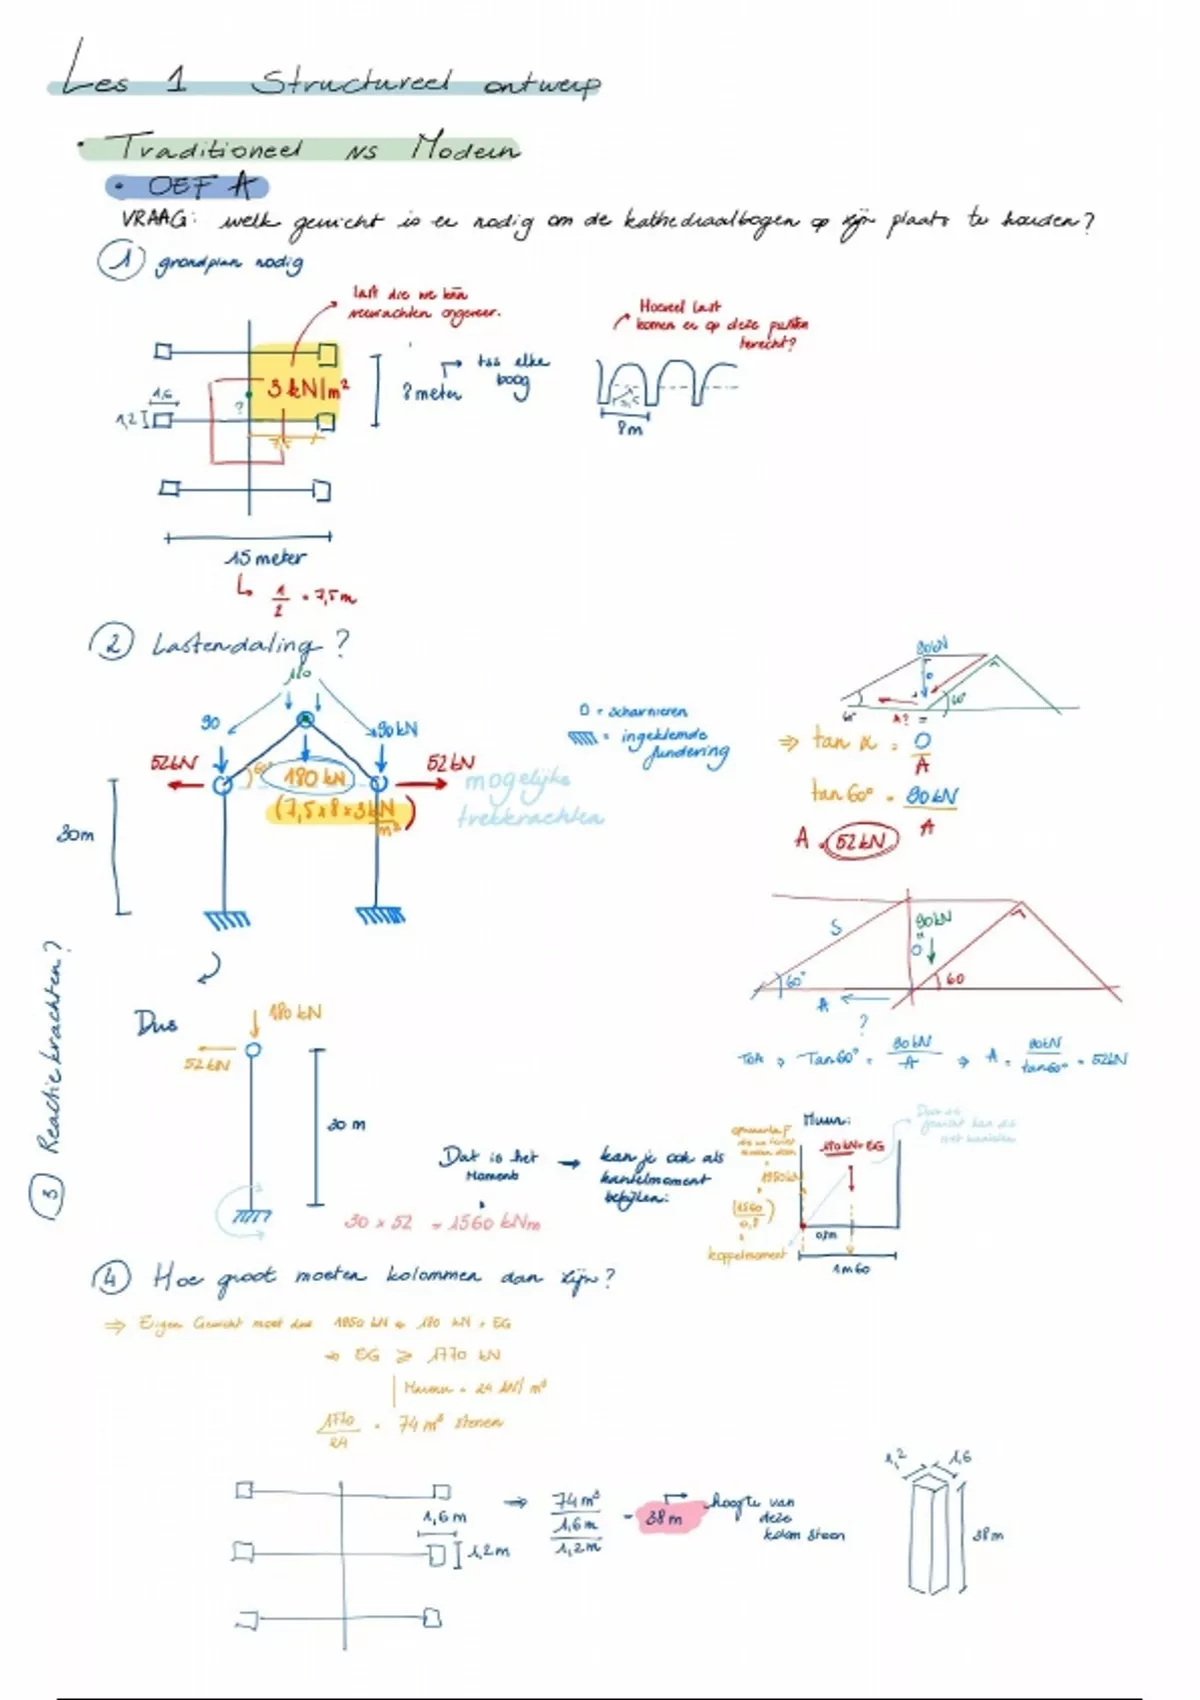 Les 1 Structureel ontwerp
• Traditioneel vs Modern
• OEF A
VRAAG: welk gewicht is er nodig om de kathedraalbogen op zijn plaats te houden?
1 grondplan nodig
last die we kan
verwachten ongeveer.
3 kN/m²
?
1,6
1,2
7,5
8 meter
tss elke
boog
Hoeveel last
komen er op deze punten
terecht?
8m
15 meter
↳ 1/2 = 7,5m
2 Lastendaling?
180
90
90kN
52kN
60°
180 kN
52kN
(7,5 x 8 x 3kN/m²)
mogelijke
trekkrachten
30m
O = scharnieren
= ingeklemde
fundering
90kN
O
60°
A?
60°
⇒ tan α = O/A
tan 60° = 90kN/A
A = 52kN
S
90kN
O
60°
60
A
?
TOA ⇒ Tan60° = 90kN/A ⇒ A = 90kN/tan60° = 52kN
3 Reactiekrachten?
Dus
180kN
52kN
30 m
Dat is het
Moment
→ kan je ook als
kantelmoment
bekijken:
30 x 52 = 1560 kNm
Muur:
180kN+EG
1950kN
(1560/0,8)
koppelmoment
0,8m
1m60
4 Hoe groot moeten kolommen dan zijn?
⇒ Eigen Gewicht moet dus 1950 kN ≤ 180 kN + EG
⇒ EG ≥ 1770 kN
Muren = 24 kN/m³
1770/24 = 74 m³ stenen
1,6 m
1,2m
⇒ 74m³/1,6m/1,2m = 38m
→ hoogte van
deze
kolom steen
1,2
1,6
38m